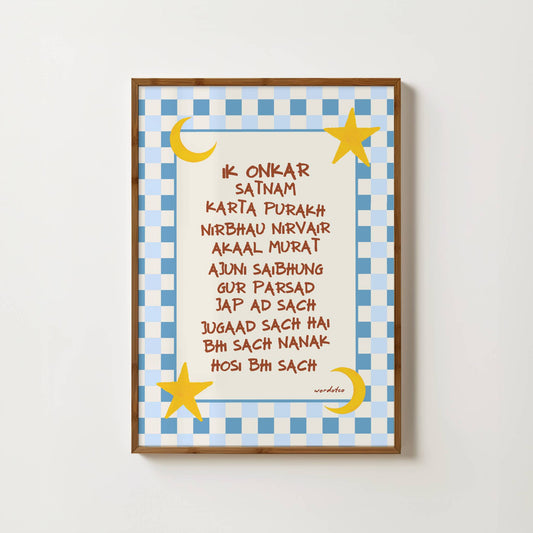 IK ONKAR
SATNAM
KARTA PURAKH
NIRBHAU NIRVAIR
AKAAL MURAT
AJUNI SAIBHUNG
GUR PARSAD
JAP AD SACH
JUGAAD SACH HAI
BHI SACH NANAK
HOSI BHI SACH
wordsteo